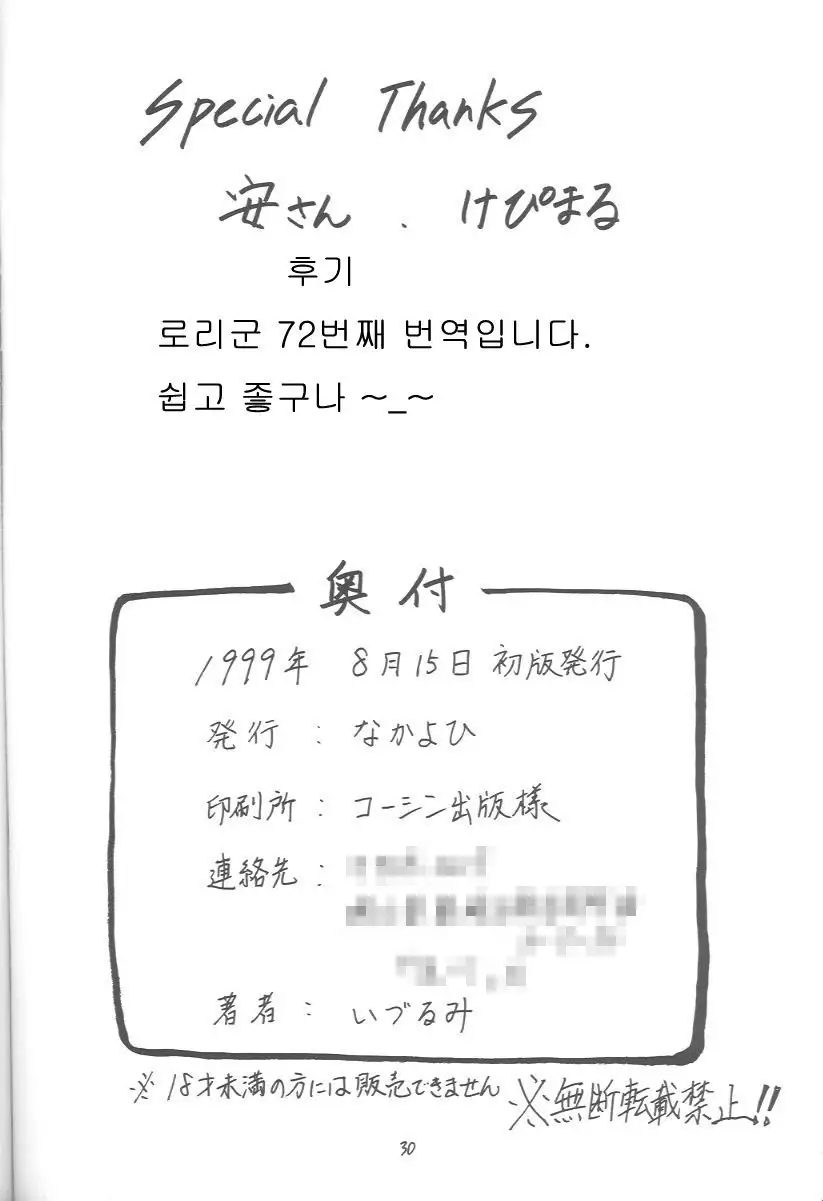 Special Thanks
安さん 、 けぴまる
후기
로리군 72번째 번역입니다.
쉽고 좋구나 ~_~
奥付
1999年 8月15日 初版発行
発行 : なかよひ
印刷所 : コーシン出版様
連絡先 :
著者 : いづるみ
※ 18才未満の方には販売できません ※無断転載禁止!!
30